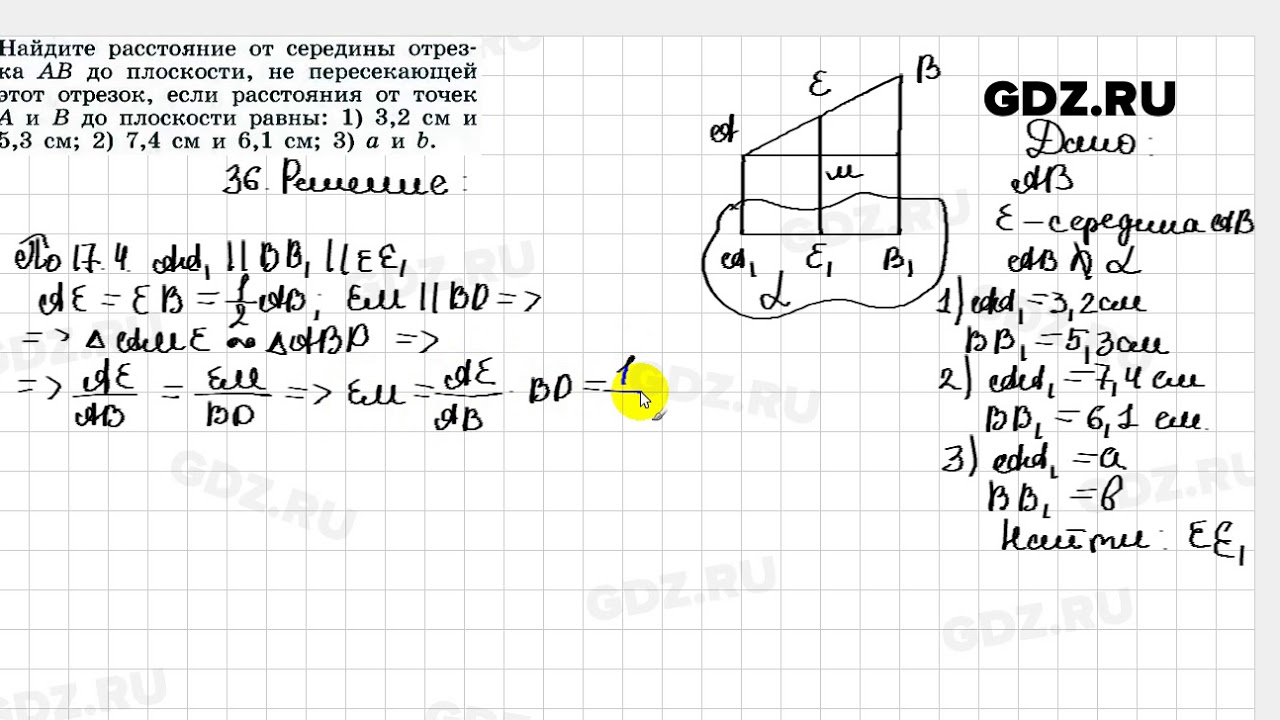 Найдите расстояние от середины отрез-
ка AB до плоскости, не пересекающей
этот отрезок, если расстояния от точек
A и B до плоскости равны: 1) 3,2 см и
5,3 см; 2) 7,4 см и 6,1 см; 3) a и b.
36. Решение:
По 17.4. AA₁ || BB₁ || EE₁
AE = EB = 1/2 AB; EM || BD =>
=> △AME ~ △ABD =>
=> AE/AB = EM/BD => EM = AE/AB · BD = 1
A
E
B
M
A₁
E₁
B₁
α
GDZ.RU
Дано:
AB
E – середина AB
AB ∦ α
1) AA₁ = 3,2 см
BB₁ = 5,3 см
2) AA₁ = 7,4 см
BB₁ = 6,1 см.
3) AA₁ = a
BB₁ = в
Найти: EE₁
GDZ.RU
GDZ.RU
GDZ.RU
GDZ.RU
GDZ.RU
GDZ.RU
GDZ.RU